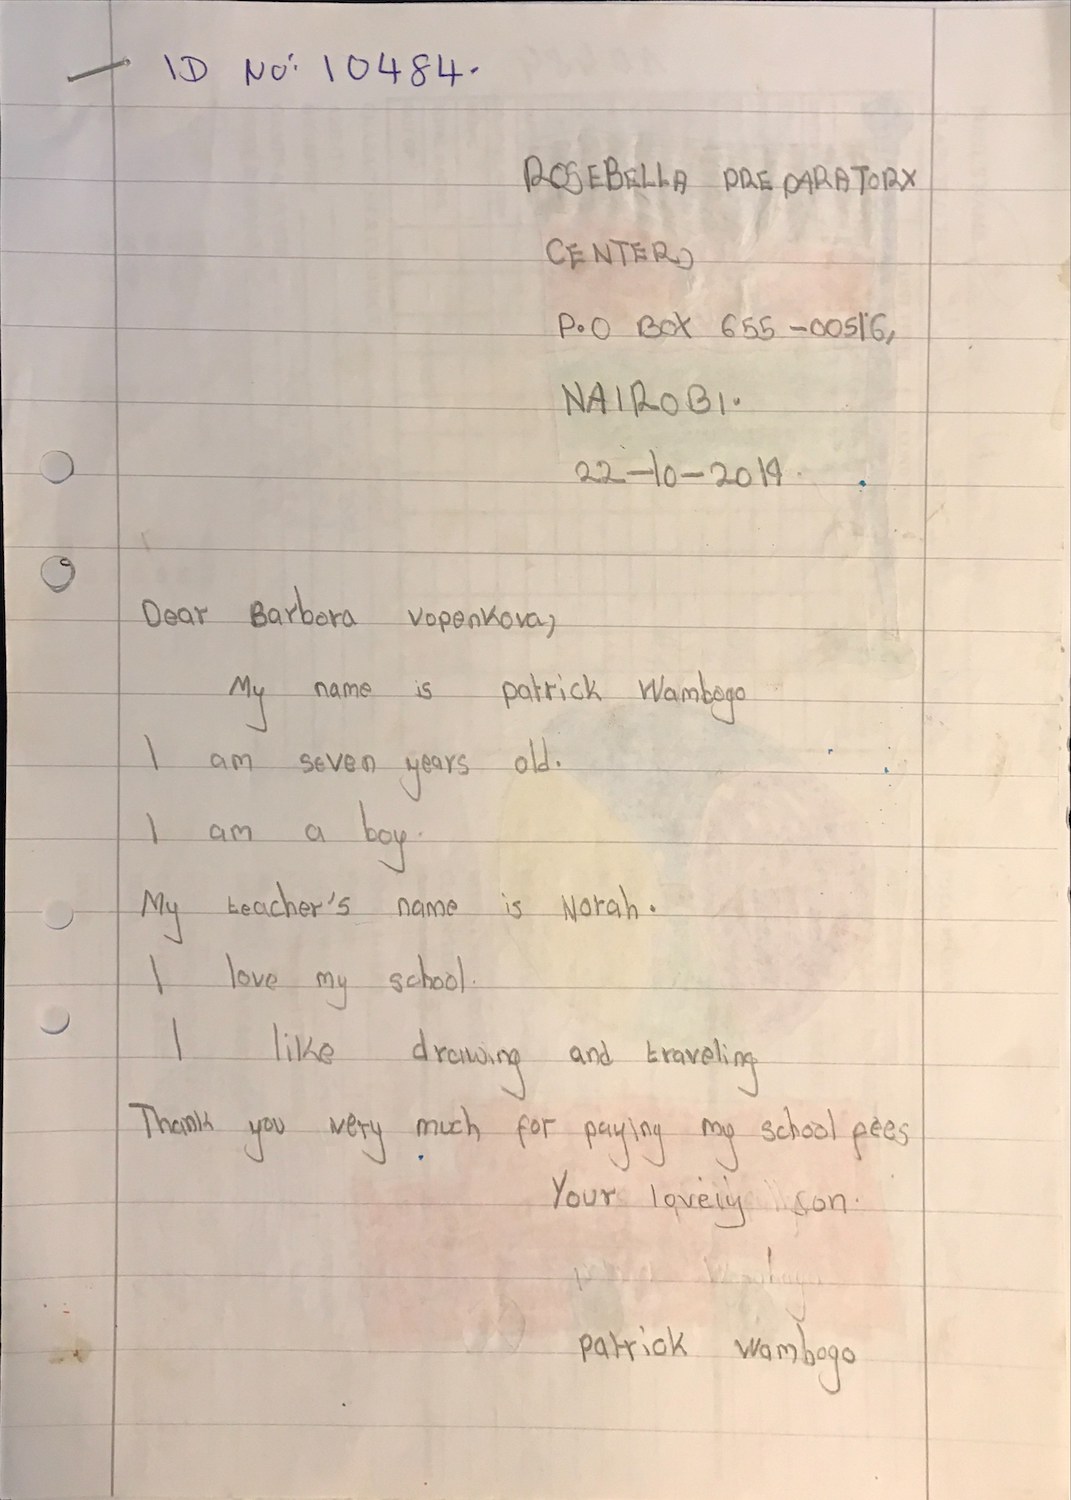 ID No: 10484.
ROSEBELLA PREPARATORY
CENTER,
P.O BOX 655-00516,
NAIROBI.
22-10-2019.
Dear Barbora vopenkova,
My name is patrick Wambogo
I am seven years old.
I am a boy.
My teacher's name is Norah.
I love my school.
I like drawing and traveling
Thank you very much for paying my school fees
Your lovely son.
patrick wambogo